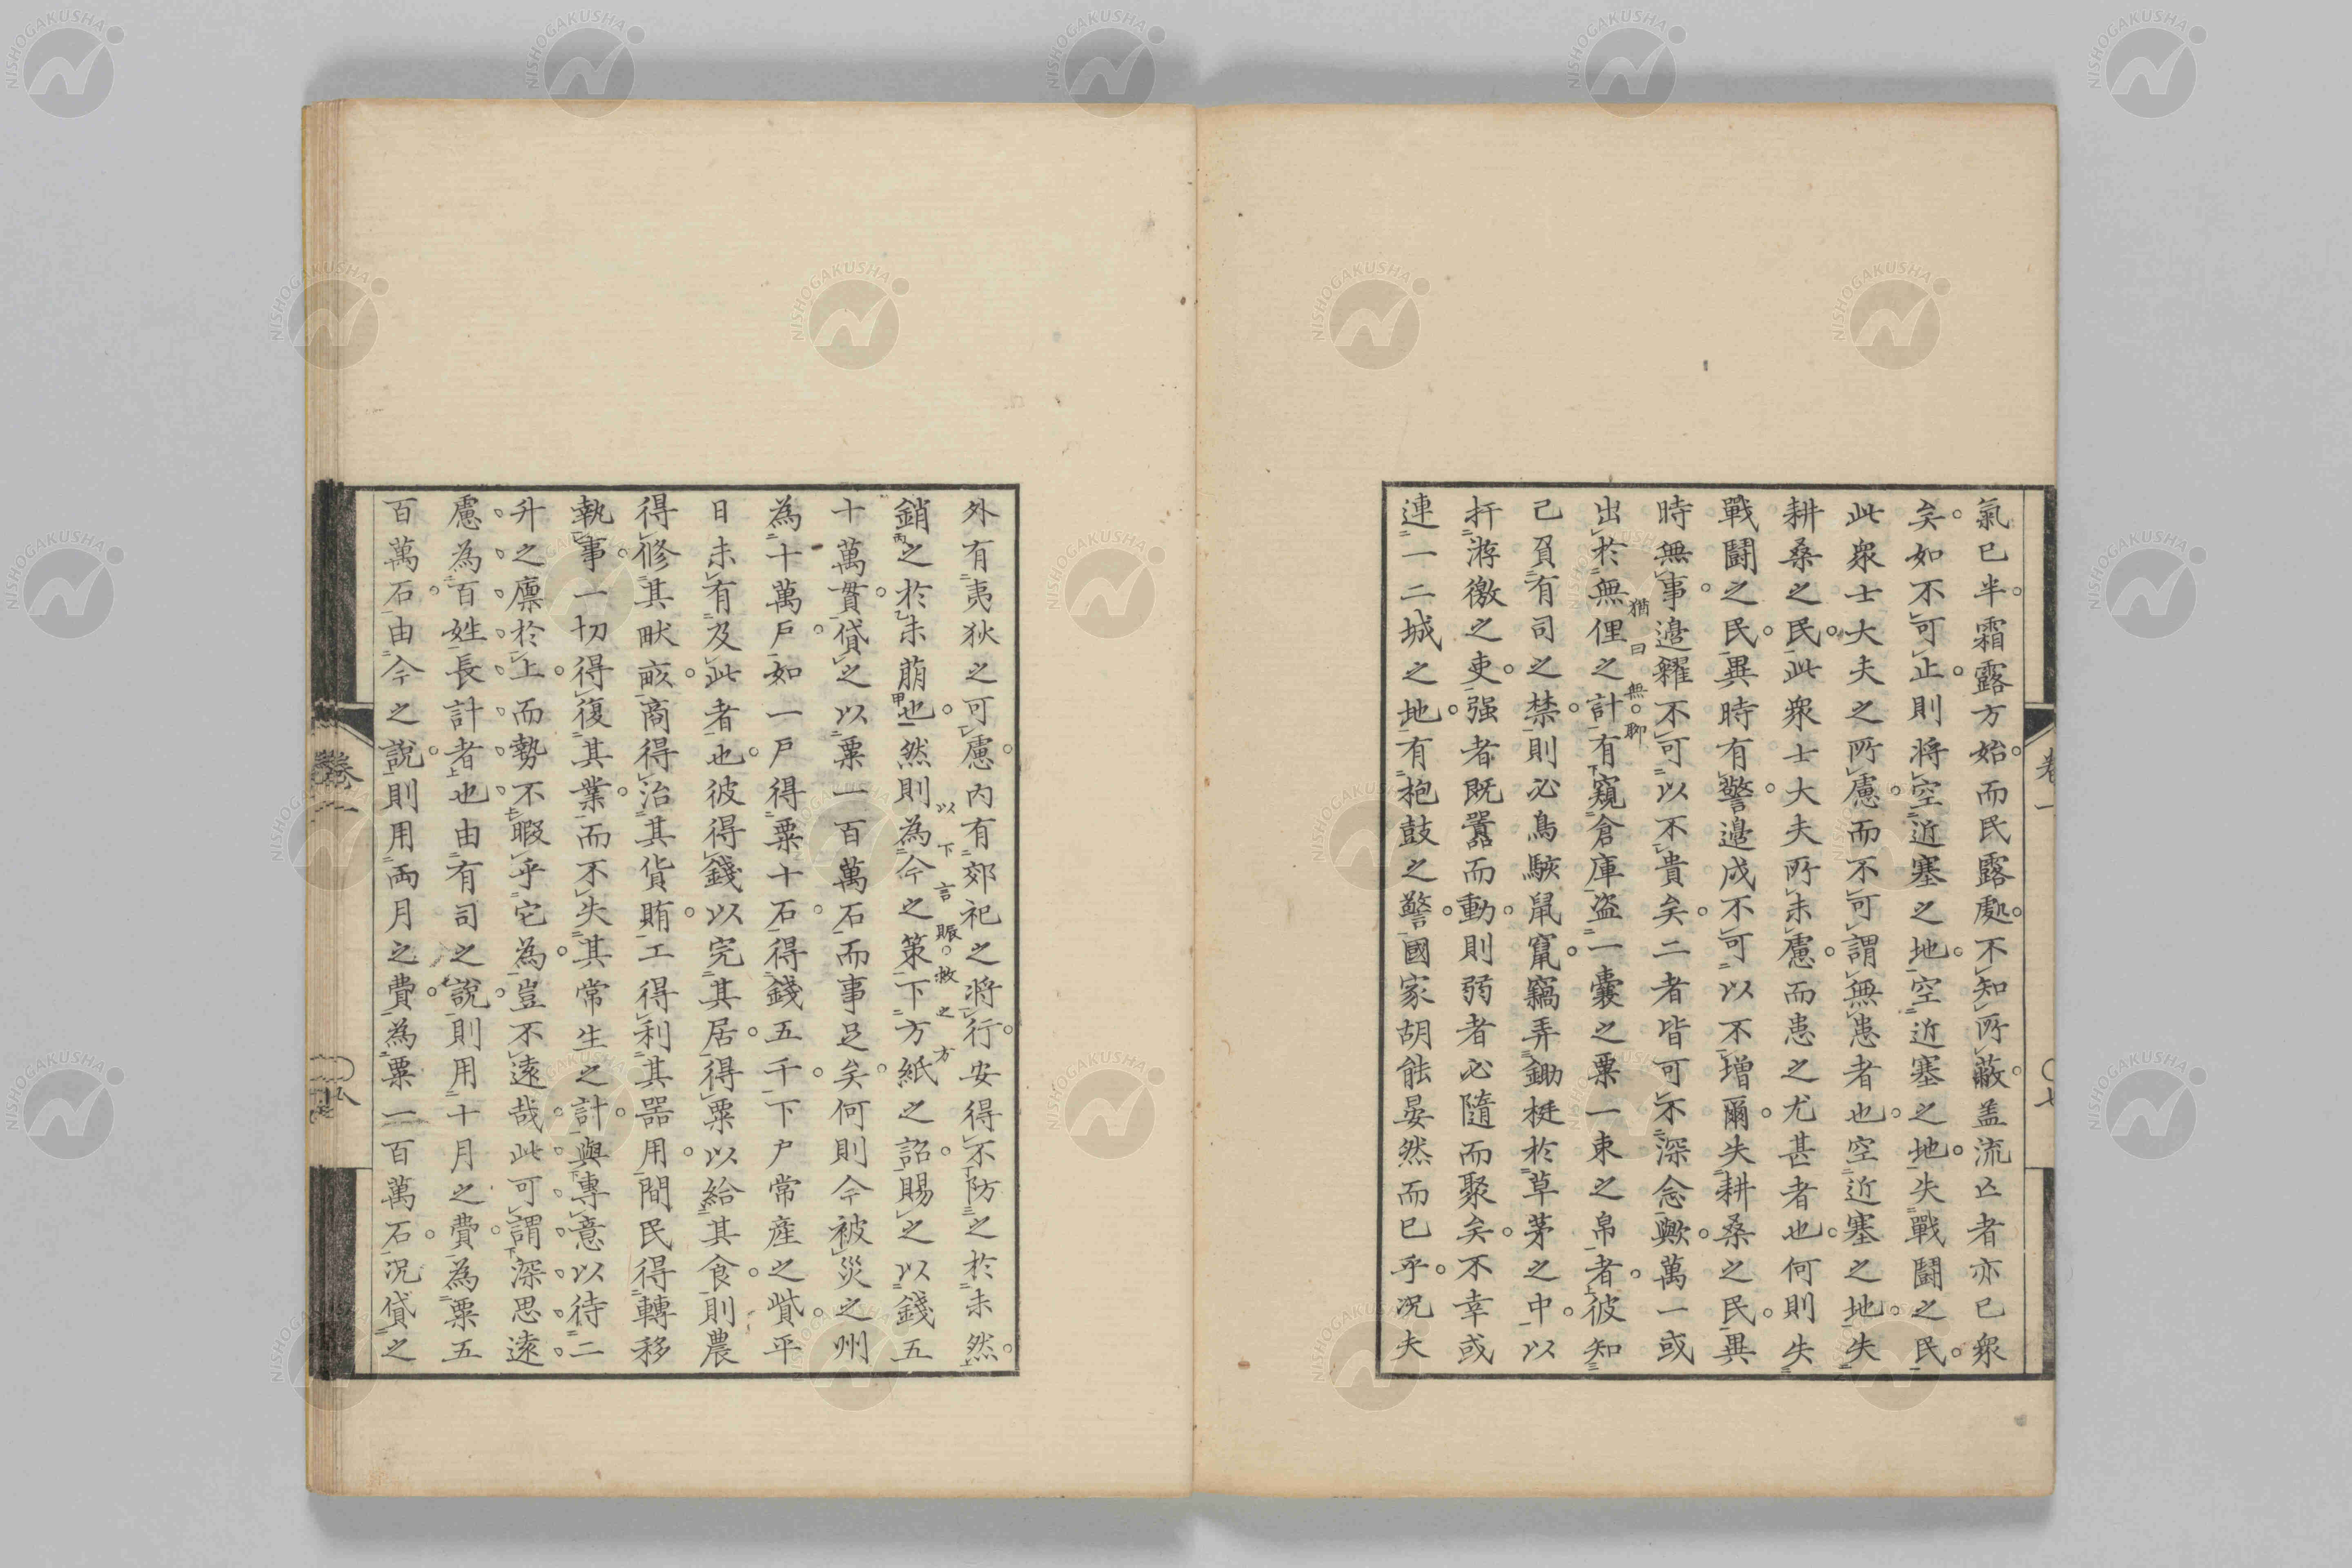 氣已半霜露方始而民露處不知所蔽盖流亡者亦已衆
矣如不可止則將空近塞之地空近塞之地失戰鬪之民
此衆士大夫之所慮而不可謂無患者也空近塞之地失
耕桑之民此衆士大夫所未慮而患之尤甚者也何則失
戰鬪之民異時有警邊戍不可以不增爾失耕桑之民異
時無事邊糴不可以不貴矣二者皆可不深念歟萬一或
出於無俚之計有窺倉庫盗一囊之粟一束之帛者彼知
猶曰無聊
己負有司之禁則必鳥駭鼠竄竊弄鋤梃於草茅之中以
扞游徼之吏强者既嚣而動則弱者必隨而聚矣不幸或
連一二城之地有枹鼓之警國家胡能晏然而已乎况夫
卷一
〇七
外有夷狄之可慮内有郊祀之將行安得不防之於未然
銷之於未萠也然則為今之策下方紙之詔賜之以錢五
以下言賑救之方
十萬貫貸之以粟一百萬石而事足矣何則今被災之州
為十萬戶如一戶得粟十石得錢五千下户常産之貲平
日未有及此者也彼得錢以完其居得粟以給其食則農
得修其畎畝商得治其貨賄工得利其器用間民得轉移
執事一切得復其業而不失其常生之計與專意以待二
升之廩於上而勢不暇乎它為豈不遠哉此可謂深思遠
慮為百姓長計者也由有司之說則用十月之費為粟五
百萬石由今之說則用兩月之費為粟一百萬石况貸之
卷一
〇八
NISHOGAKUSHA